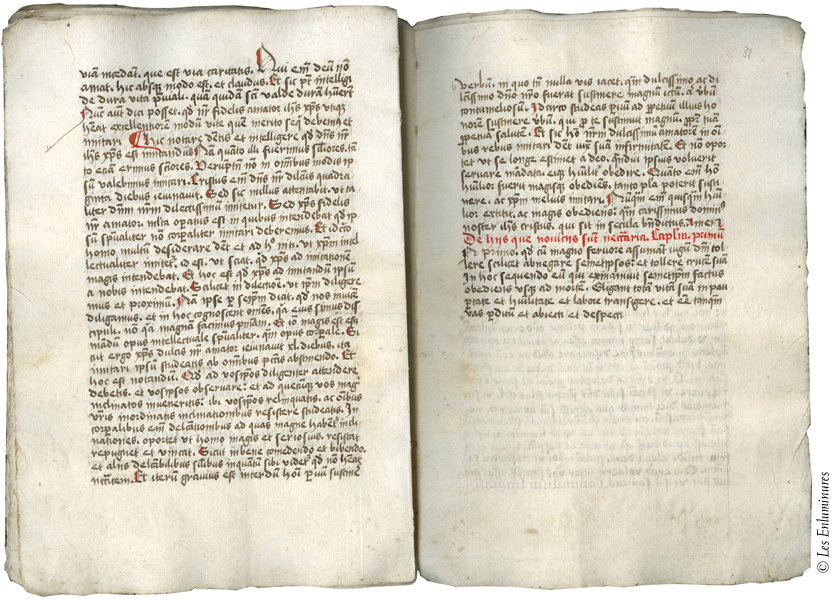 viā incedant. que est via caritatis. Qui em̄ deū nō
amat. hic absqȝ modo est. et claudus. Et sic pt̄ intelligi
de dura vita sp̄uali. quā quidā sc̄i valde durā hūerūt
Nunc aut̄ dici posset. qd̄ nr̄ fidelis amator ihs xp̄s vtiqȝ
heat excellentiorē modū vite quē merito seq̄ debemus et
imitari Hic notare debetis et intelligere qd̄ dn̄s nr̄
ihs xp̄s est imitandus Nā quāto illi fuerimus siliores. tā
to etiā erimus sc̄iores. Verumptn̄ nō in omībus modis ip̄
sū valebimus imitari. Cristus em̄ dn̄s nr̄ dilc̄us quadra
ginta diebus ieiunavit. Sed sic nullus attentabit. vt ta
liter dn̄m nr̄m dilectissimū imitetur. Sed xp̄s fidelis
nr̄ amator mlta opatus est in quibus intendebat qd̄ ip̄
sū sp̄ualiter nō corpaliter imitari deberemus. Et idc̄co
homo multū desiderare dēt et ad h̄ niti. vt xp̄m intel
lectualiter imitet. id est. vt sciat. qd̄ xp̄s ad imitationē
magis intendebat. Et hoc est qd̄ xp̄s ad imitandū ipsū
a nobis intendebat. Scilicet in dilectione. vt ip̄m diligere
mus et proximū. Nā ipse p̄ semp̄m dicit. qd̄ nos inuicē
diligamus. et in hoc cognoscent omēs. qa eius sumus dis
cipuli. nō qa magnā facimus pnīam. Et iō magis est esti
mādū opus intellectuale sp̄ualiter. qm̄ opus corpale. Si
cut ergo xp̄s dulcis nr̄ amator ieiunauit xl. diebus. ita
imitari ipsū studeatis ab omībus pctīs abstinendo. Et
hoc est notandū. Qd̄ ad vosip̄os diligenter attendere
debetis. et vosip̄os obseruare. et ad quecūqȝ vos magȝ
inclinatos inueneritis. ibi vosip̄os relinquatis. ac oībus
vr̄is inordinatis inclinationibus resistere studeatis. In
corpalibus em̄ delectationibus ad quas magne habent̄ incli
nationes. oportet vt homo magis et seriosius. resistat
repugnet et vincat. Sicut in bene comedendo et bibendo.
et aliis delectābilibus silibus inquātū sibi videt̄ qd̄ nō heat
nccītatem. Et iterū grauius est interdū hoī paruū sustinē
31
verbum. in quo tn̄ nulla vis iacet. qm̄ dulcissimo ac di
lcīssimo dn̄o nr̄o fuerat sustinere magnū ictū. a verbū
contumeliosū. Idcirco studeas paruū ad p̄petuū illius ho
norē sustinere vbū. qui p te sustinuit magnū. pp̄t tuā
p̄petuā salutē. Et sic hō nr̄m dulcissimū amatorē in oī
bus rebus imitari dēt iux suā infirmitatē. Et nō opor
tet vt se longe estimet a deo. qn̄dui ipsius voluerit
seruare mādata eiqȝ hūilit̄ obedire. Quāto em̄ hō
hūilior fuerit magisqȝ obediens. tanto pla poterit susti
nere. ac xp̄m melius imitari. Nūqm̄ em̄ quisqm̄ hūi
lior extitit. ac magis obediens. qm̄ carissimus dominus
noster ihs cristus. qui sit in secula bn̄dictus. Amen
De hiis que nouiciis sūt nccāria. Caplm̄. primū
In primo. qd̄ cū magno feruore assumāt iugū dn̄i tol
lere scilicet abnegare semetipsos. et tollere crucē suā
In hoc sequendo eū qui exinaniuit semetip̄m factus
obediens vsqȝ ad mortē. Eligant totā vitā suā in pau
ptate et hūilitate et labore transigere. et eē tanqm̄
vas p̄ditū et abiecti et despecti
© Les Enluminures